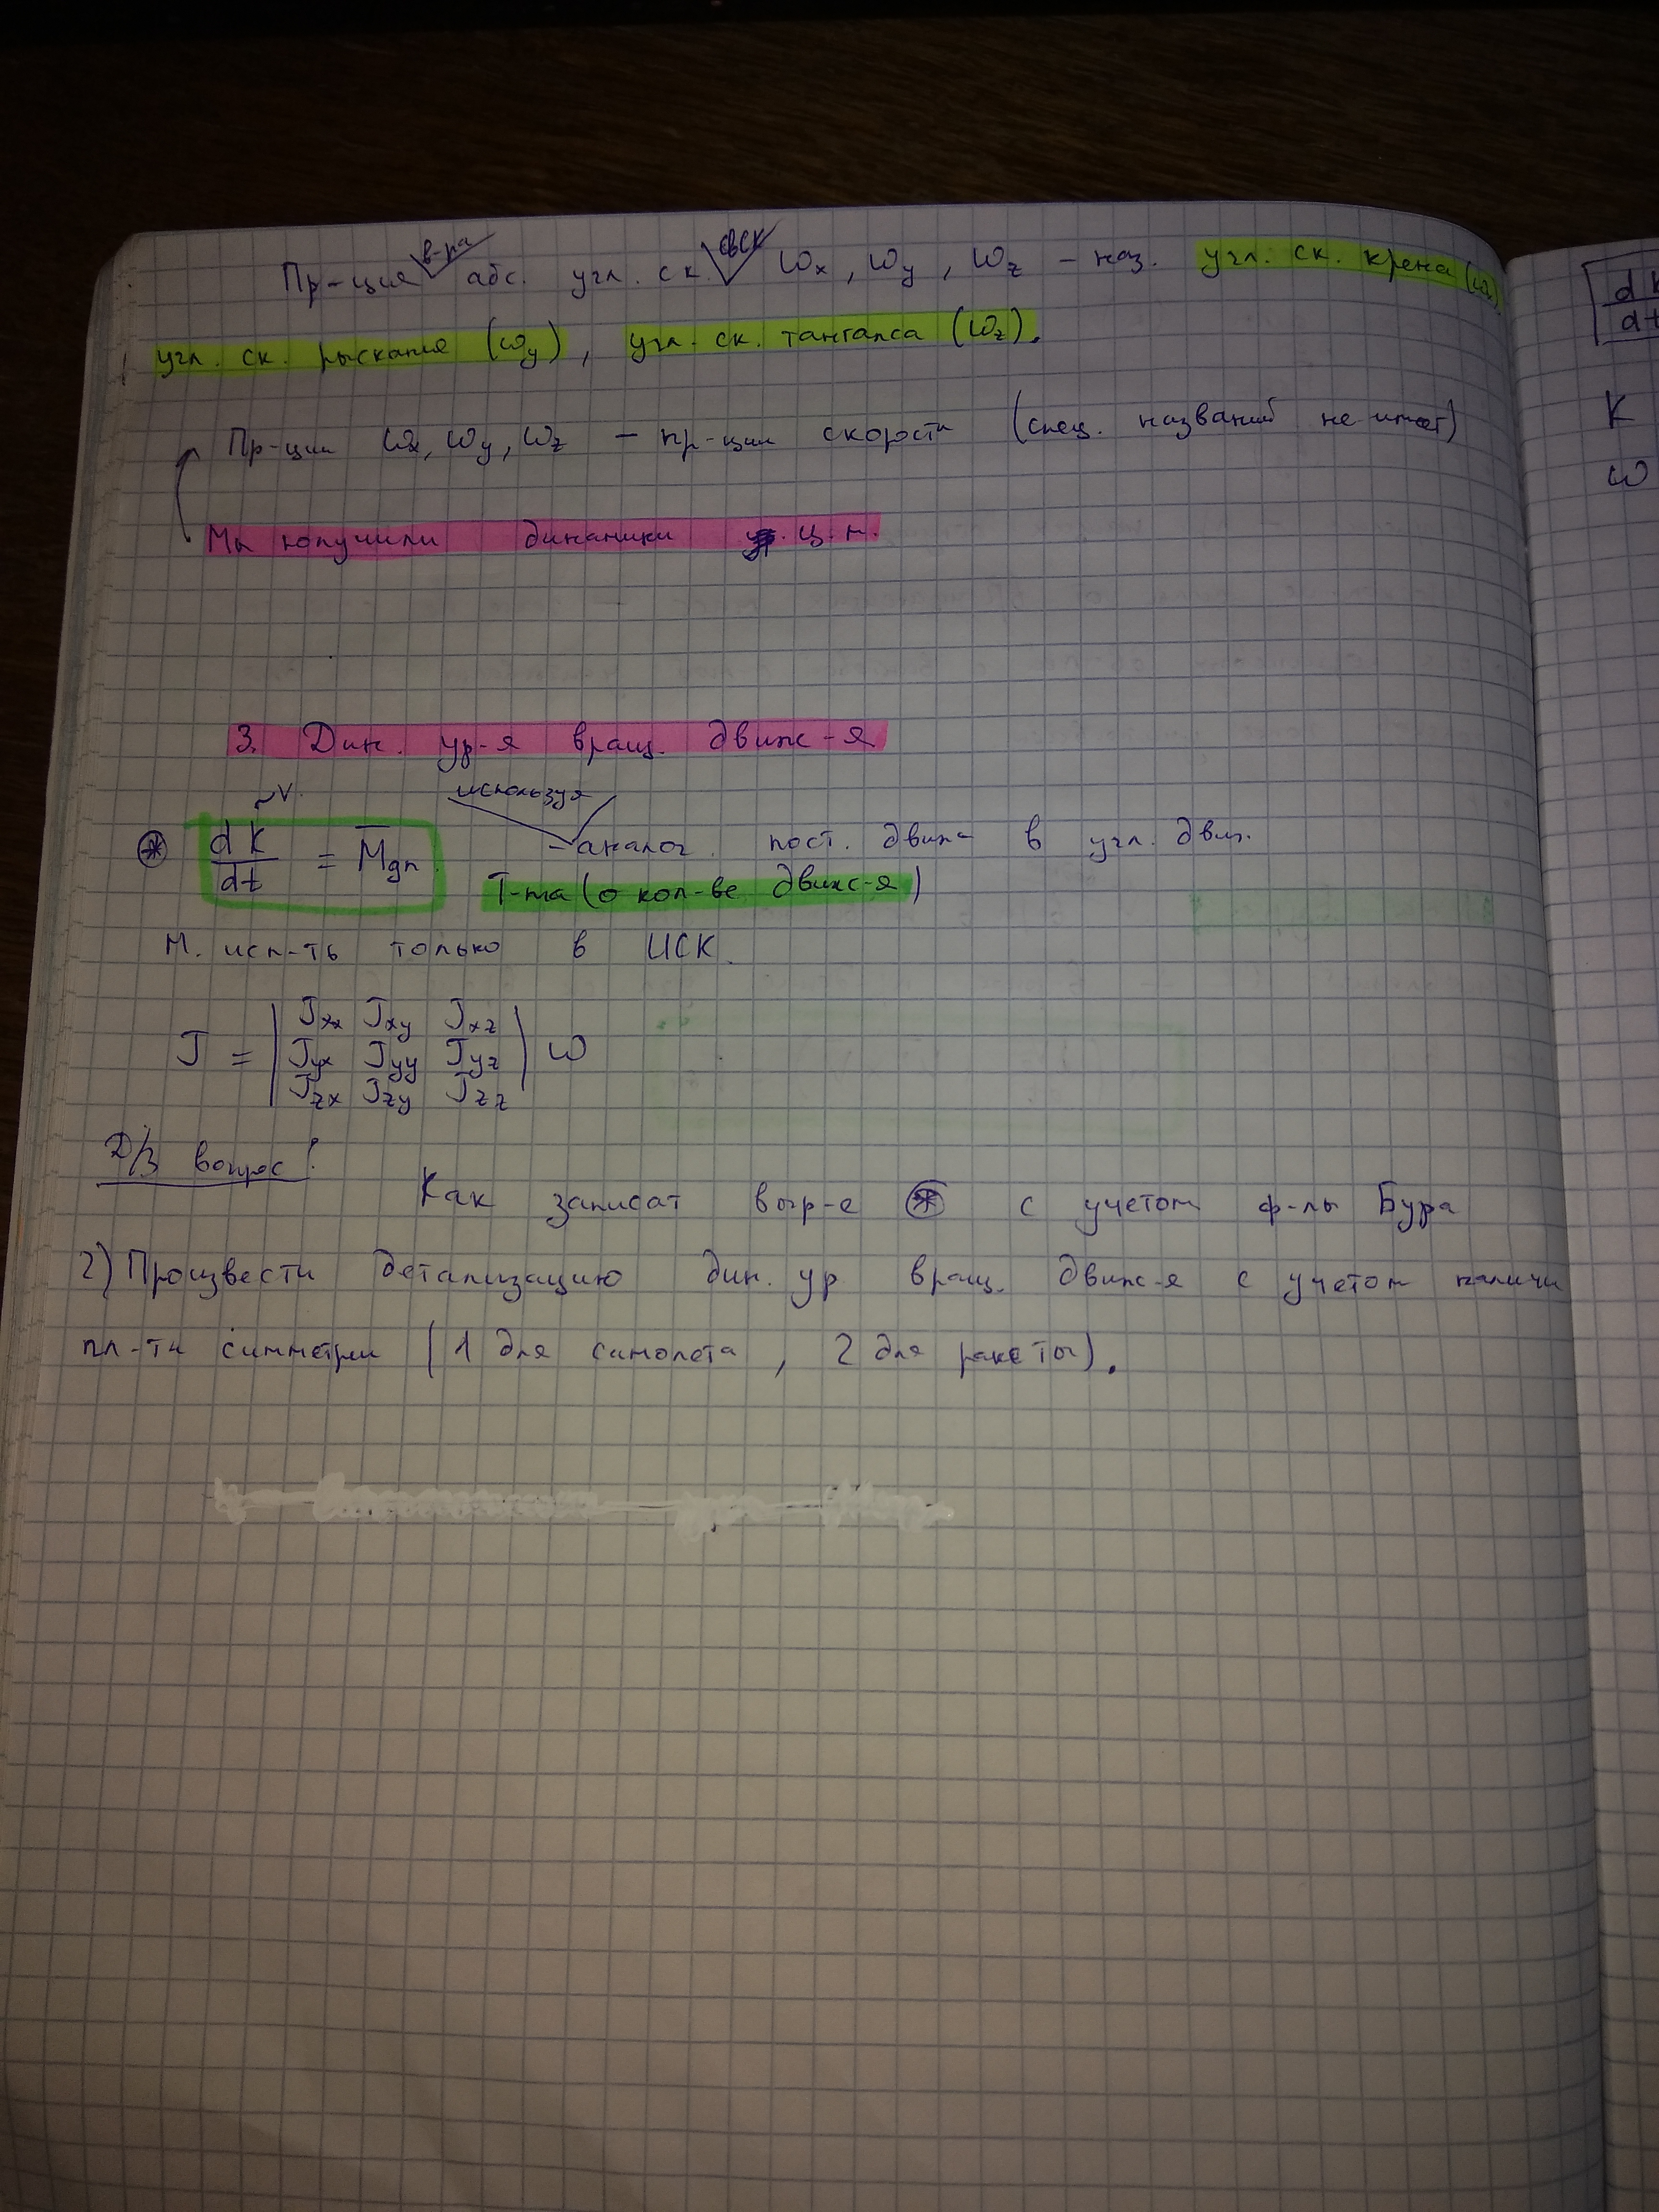 Пр-ция в-ра абс. угл. ск. свск ωx, ωy, ωz – наз. угл. ск. крена (ωx)
угл. ск. рыскания (ωy), угл. ск. тангажа (ωz).
Пр-ции ωx, ωy, ωz – пр-ции скорости (спец. названий не имеет)
Мы получили динамики ц.м.
3. Дин. ур-я вращ. движ-я
используя
⊛ dK/dt = M̄дп – аналог. пост. движ- в угл. движ.
Т-ма (о кол-ве движ-я)
М. исп-ть только в ИСК.
Jxx Jxy Jxz
J = Jyx Jyy Jyz ω
Jzx Jzy Jzz
Д/З вопрос!
Как записат выр-е ⊛ с учетом ф-лы Бура
2) Произвести детализацию дин. ур вращ. движ-я с учетом наличи
пл-ти симметрии (1 для самолета, 2 для ракеты).
dK
dt
K
ω